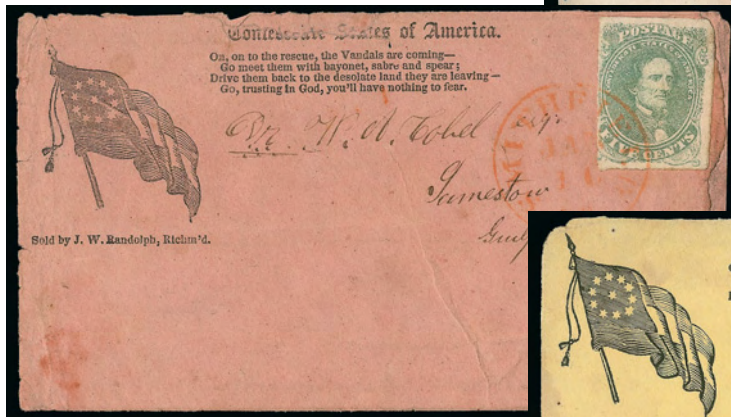 Confederate States of America.
On, on to the rescue, the Vandals are coming—
Go meet them with bayonet, sabre and spear;
Drive them back to the desolate land they are leaving—
Go, trusting in God, you'll have nothing to fear.
POSTAGE
CONFEDERATE STATES OF AMERICA
FIVE CENTS
JAN
Dr. W. A. Cobel Esqr.
Jamestow
Guil
Sold by J. W. Randolph, Richm'd.